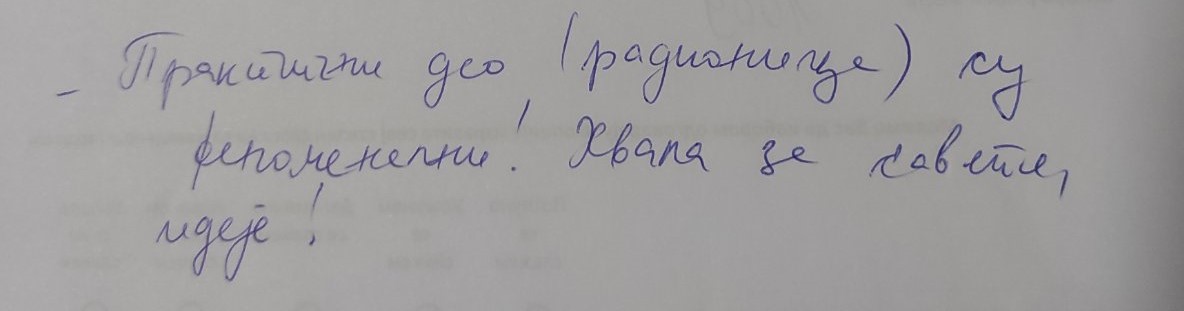 - Практични део (радионице) су
феноменални! Хвала за савете,
идеје!